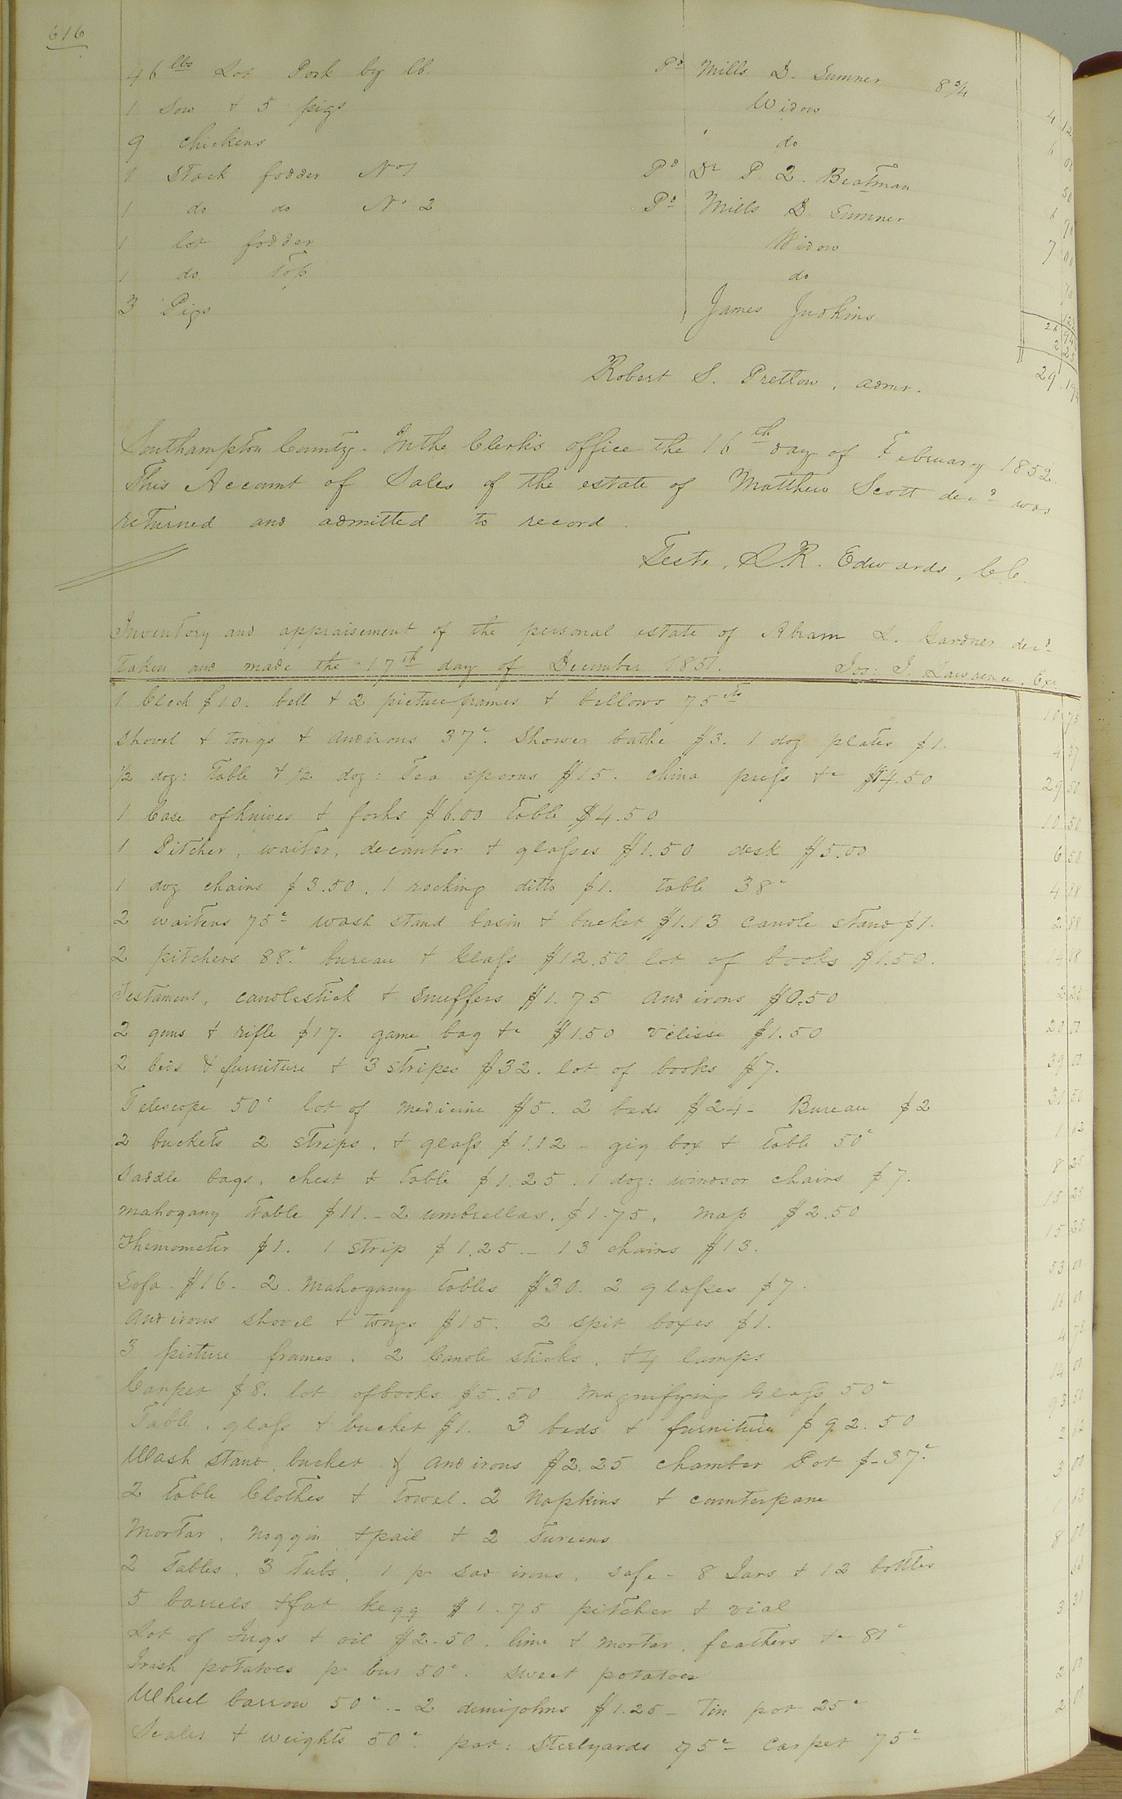 616
46 lbs Lot Pork by lb. Pd Mills D. Sumner 8 3/4
1 Sow + 5 pigs Widow 4 12
9 chickens do 6 00
1 Stack fodder No 1 Pd Dr P. 2. Beatman 50
1 do do No 2 Pd Mills D. Sumner 6
1 lot fodder Widow 7 00
1 do. Top do
3 Pigs James Judkins
29 19
Robert S. Pretlow, admr.
Southampton County. In the Clerk's office the 16th day of February 1852.
This Account of Sales of the estate of Matthew Scott decd was
returned and admitted to record.
Teste, L. R. Edwards, C. C.
Inventory and appraisement of the personal estate of Abram L. Gardner decd
taken and made the 17th day of December 1851. Jos: J. Lawrence, Exr
1 Clock $10. bell + 2 picture frames + bellows 75 cts 10 75
Shovel + tongs + andirons 37c. Shower bathe $3. 1 doz plates $1. 4 37
1/2 doz: Table + 1/2 doz: Tea spoons $15. china press +c $14.50 29 50
1 Case of knives + forks $6.00 table $4.50 10 50
1 Pitcher, waiter, decanter + glasses $1.50 desk $5.00 6 50
1 doz chairs $3.50. 1 rocking ditto $1. table 38c 4 88
2 waiters 75c wash stand basin + bucket $1.13 candle stand $1. 2 88
2 pitchers 88c. bureau + glass $12.50 lot of books $1.50. 14 88
Testament, candlestick + snuffers $1.75 and irons $0.50 2 25
2 guns + rifle $17. game bag +c $1.50 velisse $1.50 20 00
2 beds & furniture + 3 stripes $32. lot of books $7. 39 00
Telescope 50c lot of medicine $5. 2 beds $24 - Bureau $2 31 50
2 buckets 2 strips, + glass $1.12 - gig box + table 50c 1 62
Saddle bags, chest + table $1.25. 1 doz: windsor chairs $7. 8 25
Mahogany table $11. - 2 umbrellas, $1.75, map $2.50 15 25
Thermometer $1. 1 strip $1.25 - 13 chairs $13. 15 25
Sofa. $16. 2 Mahogany tables $30. 2 glasses $7. 53 00
And irons shovel + tongs $15. 2 spit boxes $1. 16 00
3 picture frames. 2 Candle sticks, + 4 lamps 4 75
Carpet $8. lot of books $5.50 Magnifying Glass 50c 14 00
Table, glass + bucket $1. 3 beds + furniture $92.50 93 50
Wash stand, bucket & and irons $2.25 chamber Pot $-37c 2 62
2 Table Clothes + towel. 2 Napkins + counterpane 3 00
Mortar, noggin + pail + 2 tureens
2 Tables, 3 Tubs, 1 pr sad irons, safe - 8 Jars + 12 bottles 8 00
5 barrels + fat kegg $1.75 pitcher + vial
Lot of Jugs + oil $2.50. lime + mortar, feathers +c 81c 3 31
Irish potatoes pr bus 50c. sweet potatoes
Wheel barrow 50c - 2 demijohns $1.25 - Tin pot 25c 2 00
Scales + weights 50c. pat: Steelyards 75c - carpet 75c 2 00